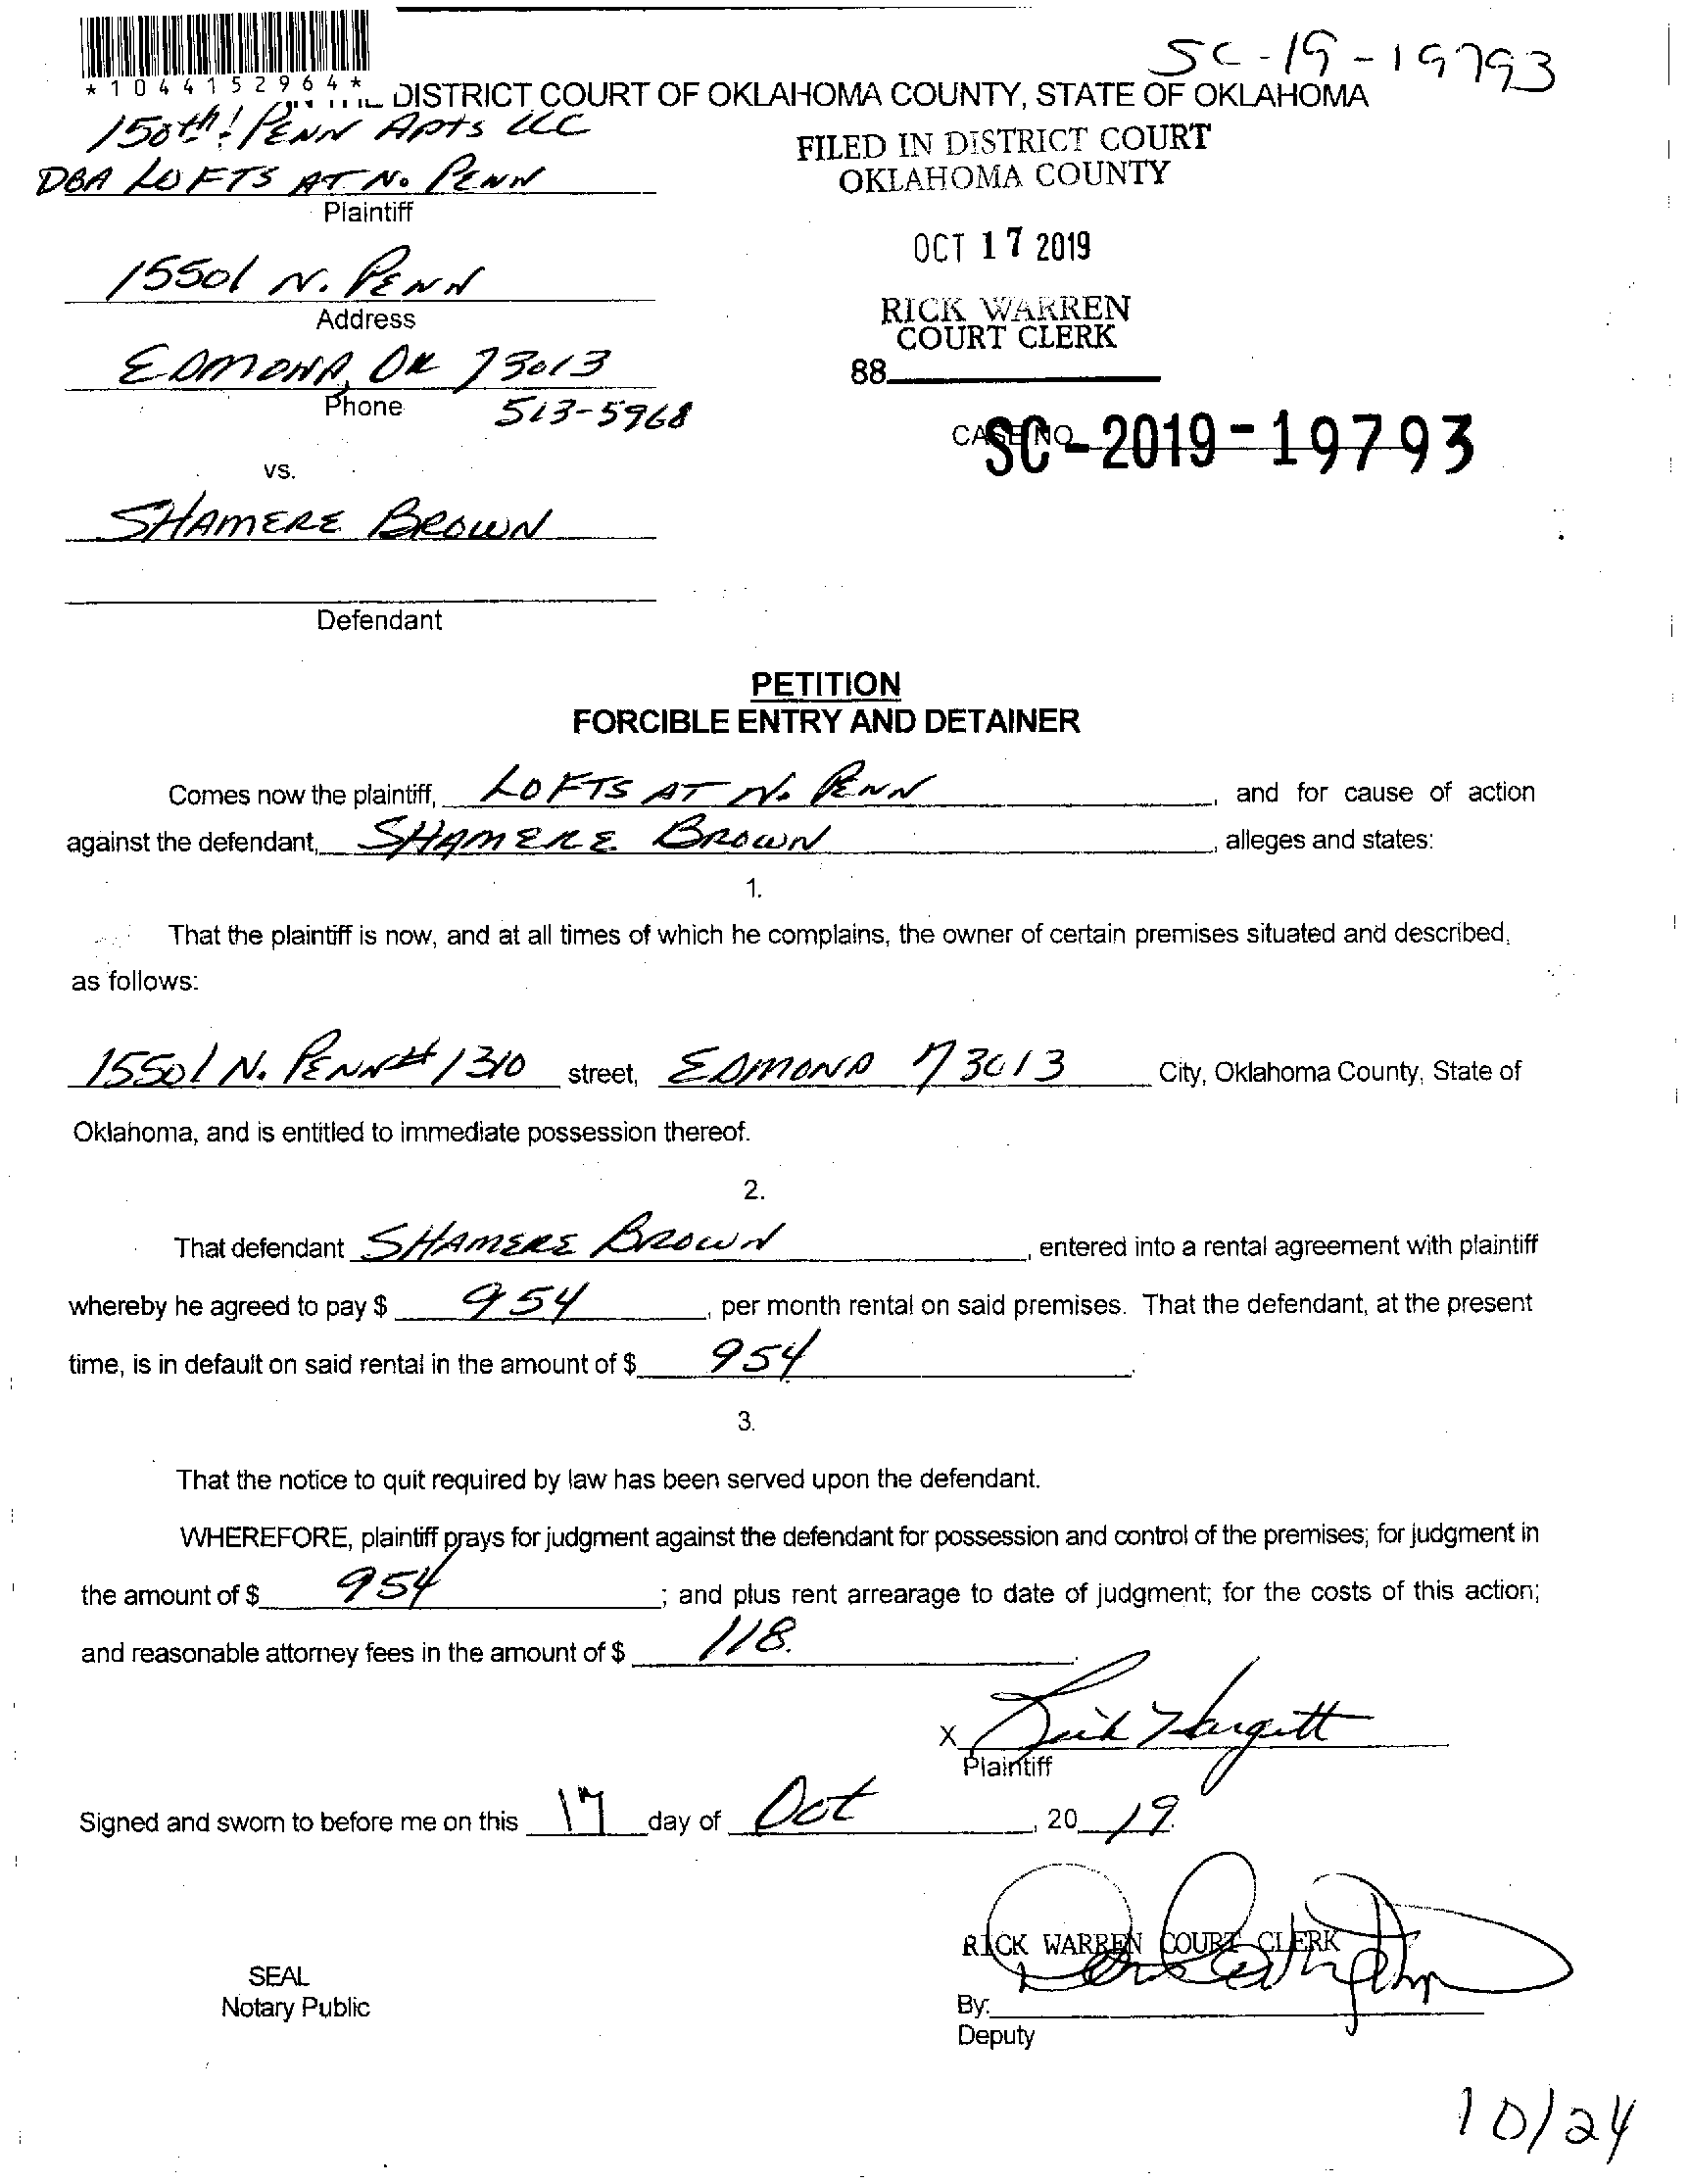 SC-19-19793
*1044152964*
IN THE DISTRICT COURT OF OKLAHOMA COUNTY, STATE OF OKLAHOMA
150th! PENN Apts LLC
DBA LOFTS AT N. PENN
Plaintiff
FILED IN DISTRICT COURT
OKLAHOMA COUNTY
OCT 17 2019
RICK WARREN
COURT CLERK
88
15501 N. PENN
Address
EDMOND, OK 73013
Phone 513-5968
CASE NO.
SC-2019-19793
vs.
SHAMERE BROWN
Defendant
PETITION
FORCIBLE ENTRY AND DETAINER
Comes now the plaintiff, LOFTS AT N. PENN, and for cause of action
against the defendant, SHAMERE BROWN, alleges and states:
1.
That the plaintiff is now, and at all times of which he complains, the owner of certain premises situated and described,
as follows:
15501 N. PENN # 1310 street, EDMOND 73013 City, Oklahoma County, State of
Oklahoma, and is entitled to immediate possession thereof.
2.
That defendant SHAMERE BROWN, entered into a rental agreement with plaintiff
whereby he agreed to pay $ 954, per month rental on said premises. That the defendant, at the present
time, is in default on said rental in the amount of $ 954.
3.
That the notice to quit required by law has been served upon the defendant.
WHEREFORE, plaintiff prays for judgment against the defendant for possession and control of the premises; for judgment in
the amount of $ 954; and plus rent arrearage to date of judgment; for the costs of this action;
and reasonable attorney fees in the amount of $ 118.
X Hargett
Plaintiff
Signed and sworn to before me on this 17 day of Oct, 20 19.
RICK WARREN COURT CLERK
SEAL
Notary Public
By:
Deputy
10/24